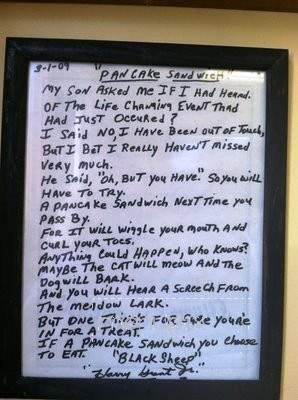 3-1-09
"PANCAKE SANDWICH"
MY SON ASKED ME IF I HAD HEARD.
OF THE LIFE CHANING EVENT THAD
HAD JUST OCCURED?
I SAID NO, I HAVE BEEN OUT OF TOUCH,
BUT I BET I REALLY HAVEN'T MISSED
VERY MUCH.
HE SAID, "OH, BUT YOU HAVE." SO YOU WILL
HAVE TO TRY.
A PANCAKE SANDWICH NEXT TIME YOU
PASS BY.
FOR IT WILL WIGGLE YOUR MOUTH AND
CURL YOUR TOES.
ANYTHING COULD HAPPEN, WHO KNOWS?
MAYBE THE CAT WILL MEOW AND THE
DOG WILL BARK.
AND YOU WILL HEAR A SCREECH FROM
THE MEADOW LARK.
BUT ONE THING'S FOR SURE YOU'RE
IN FOR A TREAT.
IF A PANCAKE SANDWICH YOU CHOOSE
TO EAT.
"BLACK SHEEP"
"Harry Jr."